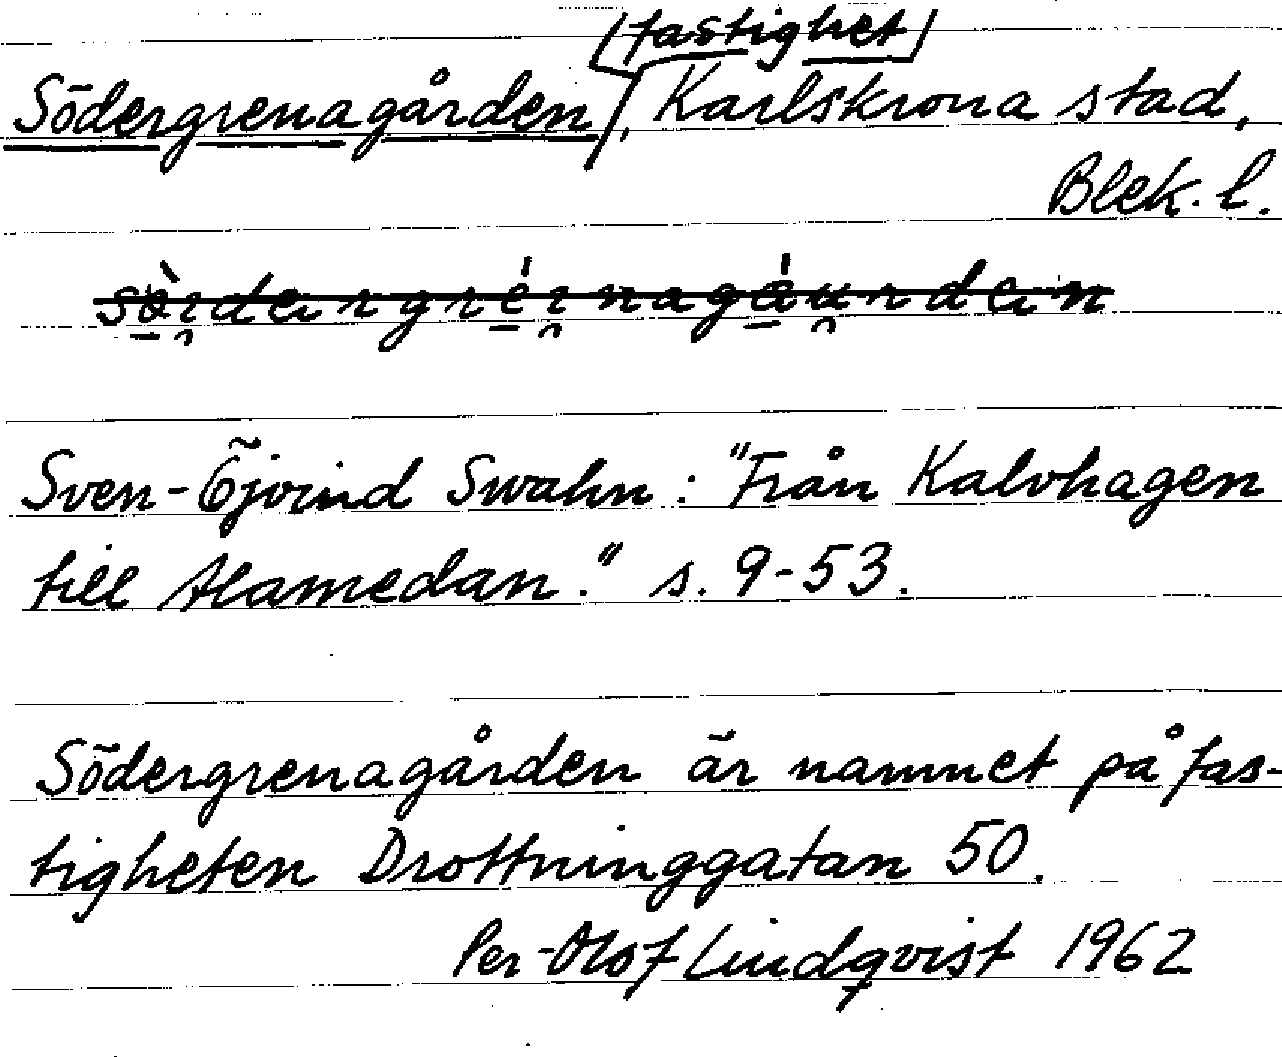 (fastighet)
Södergrenagården, Karlskrona stad,
Blek. l.
Sven-Öjvind Swahn: "Från Kalvhagen
till Alamedan." s. 9-53.
Södergrenagården är namnet på fas-
tigheten Drottninggatan 50.
Per-Olof Lindqvist 1962